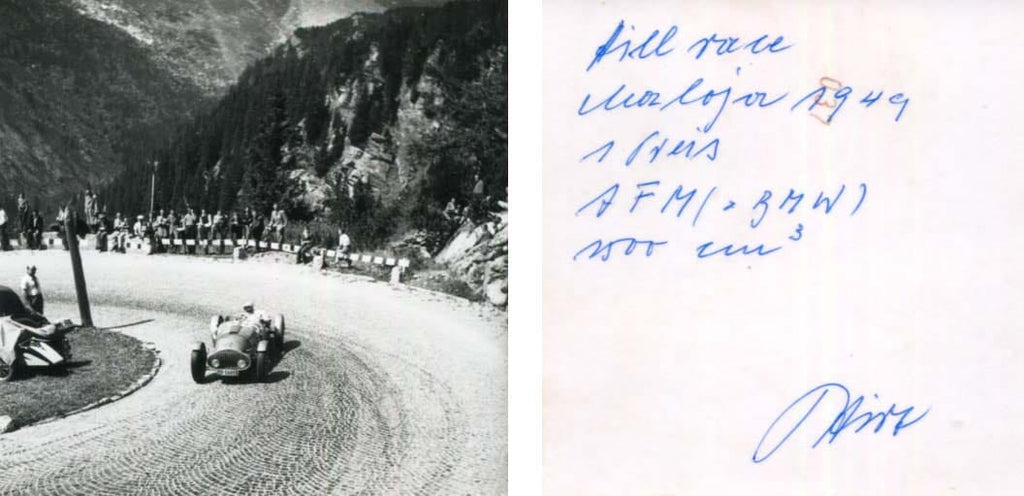 Hill race
Maloja 1949
1 Preis
AFM (= BMW)
1500 cm³
Hirt